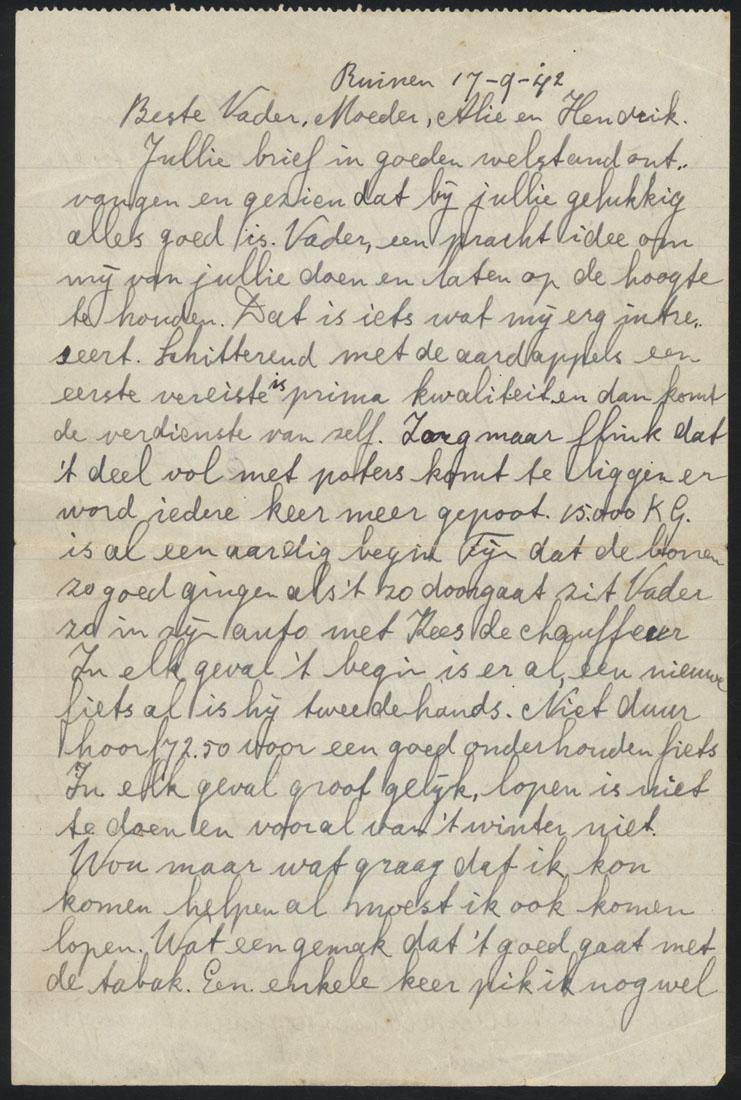 Ruinen 17-9-'42
Beste Vader, Moeder, Alie en Hendrik.
Jullie brief in goeden welstand ont-
vangen en gezien dat bij jullie gelukkig
alles goed is. Vader, een pracht idee om
mij van jullie doen en laten op de hoogte
te houden. Dat is iets wat mij erg intre-
seert. Schitterend met de aardappels een
eerste vereiste is prima kwaliteit en dan komt
de verdienste van zelf. Zorg maar flink dat
't deel vol met poters komt te liggen er
word iedere keer meer gepoot. 15.000 KG.
is al een aardig begin Fijn dat de bonen
zo goed gingen als 't zo doorgaat zit Vader
zo in zijn auto met Kees de chauffeur
In elk geval 't begin is er al, een nieuwe
fiets al is hij tweedehands. Niet duur
hoor f72.50 voor een goed onderhouden fiets
In elk geval groot gelijk, lopen is niet
te doen en vooral van 't winter niet.
Wou maar wat graag dat ik kon
komen helpen al moest ik ook komen
lopen. Wat een gemak dat 't goed gaat met
de tabak. Een enkele keer pik ik nog wel